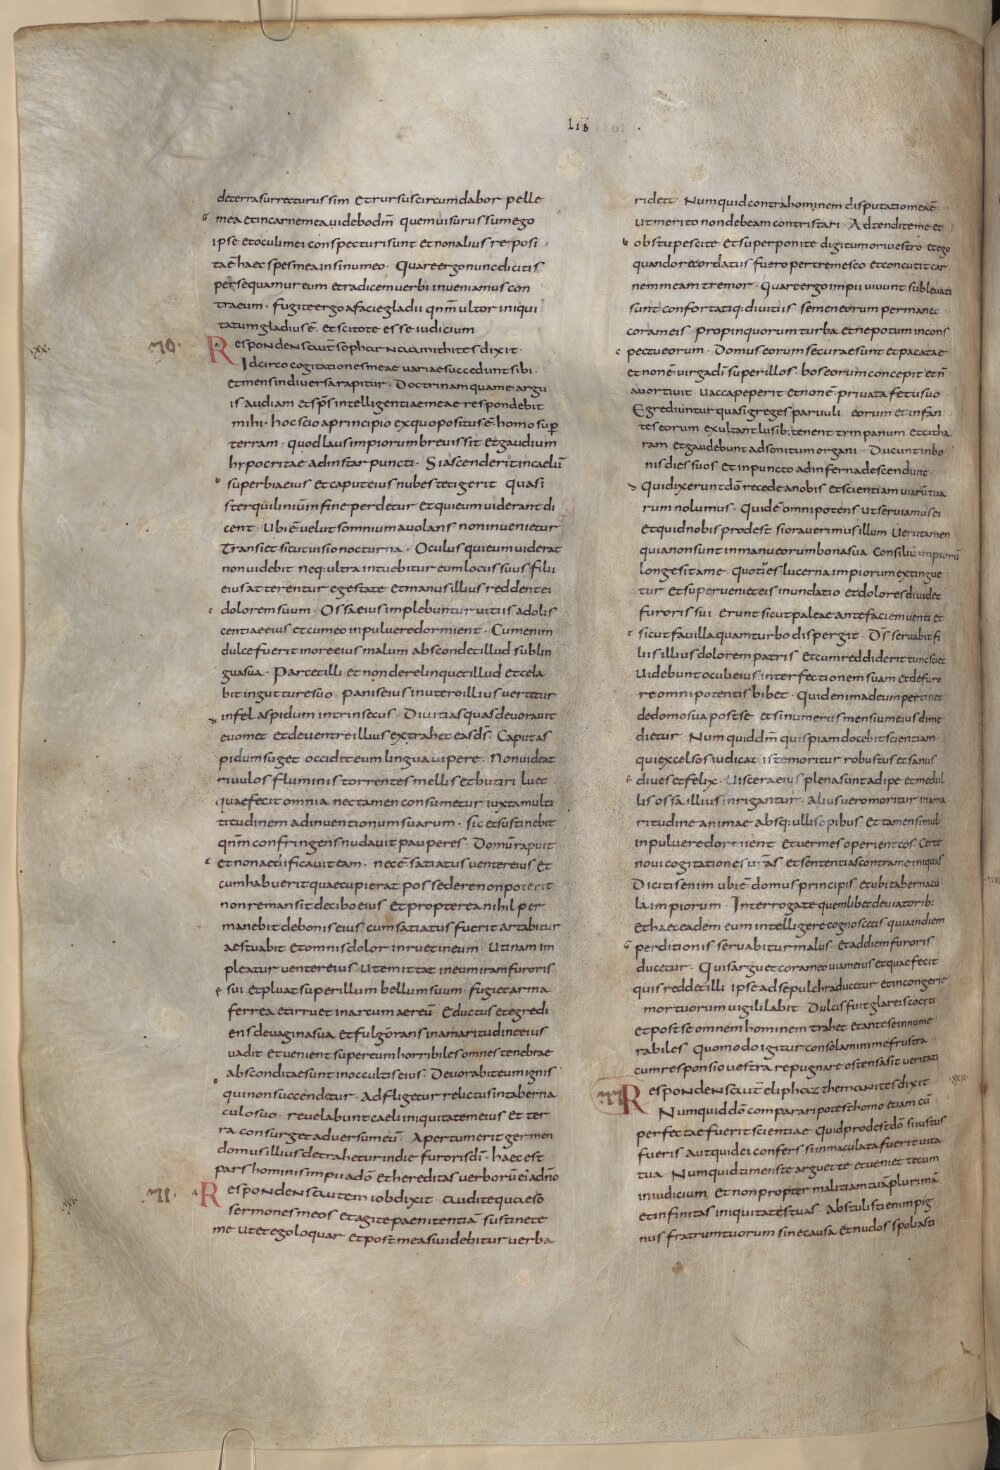 LIB
de terra surrecturus sim et rursus circumdabor pelle
mea et in carne mea videbo dm̄ quem visurus sum ego
ipse et oculi mei conspecturi sunt et non alius reposi
ta ē haec spes mea in sinu meo · Quare ergo nunc dicitis
persequamur eum et radicem verbi inveniamus con
tra eum · fugite ergo a facie gladii qnm̄ ultor iniqui
tatum gladius ē · et scitote esse iudicium
Respondens aut̄ sophar naamathites dixit ·
Idcirco cogitationes meae variae succedunt sibi ·
et mens in diversa rapitur · Doctrinam qua me argu
is audiam et sps̄ intelligentiae meae respondebit
mihi · hoc scio a principio ex quo positus ē homo sup
terram · quod laus impiorum brevis sit et gaudium
hypocritae ad instar puncti · Si ascenderit in caelū
superbia eius et caput eius nubes tetigerit quasi
sterquiliniū in fine perdetur et qui eum viderant di
cent · Ubi ē velut somnium avolans non invenietur
Transiet sicut visio nocturna · Oculus qui eum viderat
non videbit neq: ultra intuebitur eum locus suus filii
eius atterentur egestate et manus illius reddent ei
dolorem suum · Ossa eius implebuntur vitiis adolis
centiae eius et cum eo in pulvere dormient · Cum enim
dulce fuerit in ore eius malum abscondet illud sub lin
gua sua · Parcet illi et non derelinquet illud et cela
bit in gutture suo · panis eius in utero illius vertetur
in fel aspidum intrinsecus · Divitias quas devoravit
evomet et de ventre illius extrahet eas ds̄ · Caput as
pidum suget occidet eum lingua viperae · Non videat
rivulos fluminis torrentes mellis et butiri luet
quae fecit omnia nec tamen consumetur iuxta multi
titudinem adinventionum suarum · sic et sustinebit
qnm̄ confringens nudavit pauperes · Domum rapuit
et non aedificavit eam · nec ē satiatus venter eius et
cum habuerit quae cupierat possedere non poterit
non remansit de cibo eius et propterea nihil per
manebit de bonis eius · cum satiatus fuerit artabitur
aestuabit et omnis dolor inruet in eum · Utinam im
pleatur venter eius ut emittat in eum iram furoris
sui et pluat super illum bellum suum · fugiet arma
ferrea et irruet in arcum aereū · Eductus et egredi
ens de vagina sua et fulgorans in amaritudine eius
vadit et venient super eum horribiles omnes tenebrae
absconditae sunt in occultis eius · Devorabit eum ignis
qui non succendetur · Adfligetur relictus in taberna
culo suo · revelabunt caeli iniquitatem eius et ter
ra consurget adversum eū · Apertum erit germen
domus illius detrahetur in die furoris dī · haec est
pars hominis impii a dō et hereditas verborū ei a dno
Respondens autem iob dixit Audite quaeso
sermones meos et agite paenitentiā sustinete
me ut et ego loquar et post mea si videbitur verba
ridete Num quid contra hominem disputatio mea ē
ut merito non debeam contristari Adtendite me et
obstupescite et superponite digitum ori vestro et ego
quando recordatus fuero pertremesco et concutit car
nem meam tremor · quare ergo impii vivunt sublevati
sunt confortatiq: divitiis semen eorum permanet
coram eis · propinquorum turba et nepotum in cons
pectu eorum · Domus eorum securae sunt et pacatae
et non ē virga dī super illos · bos eorum concepit et ñ
avortivit vacca peperit et non ē privata fetu suo
Egrediuntur quasi greges parvuli eorum et infan
tes eorum exultant lusib: tenent tympanum et citha
ram et gaudebunt ad sonitum organi · Ducunt in bo
nis dies suos et in puncto ad inferna descendunt ·
Qui dixerunt dō recede a nobis et scientiam viarū tua
rum nolumus · Quid ē omnipotens ut serviamus ei
et quid nobis prodest si oraverimus illum veruntamen
quia non sunt in manu eorum bona sua consiliū impiorū
longe sit a me · Quoties lucerna impiorum extingue
tur et superveniet eis inundatio et dolores dividet
furoris sui erunt sicut paleae ante faciem venti et
sicut favilla quam turbo dispergit · Ds̄ servabit fi
liis illius dolorem patris et cum reddiderit tunc sciet
Videbunt oculi eius interfectionem suam et de furo
re omnipotentis bibet · Quid enim ad eum pertinet
de domo sua post se et si numerus mensium eius dime
dietur Num quid dm̄ quispiam docebit scientiam
qui excelsos iudicat iste moritur robustus et sanus
dives et felix · Viscera eius plena sunt adipe et medul
lis ossa illius inrigantur · Alius vero moritur in ama
ritudine animae absq: ullis opibus et tamen simul
in pulvere dormient et vermes operient eos Certe
novi cogitationes vr̄as et sententias contra me iniquas
Dicitis enim ubi ē domus principis et ubi tabernacu
la impiorum · Interrogate quemlibet de viatorib:
et haec eadem eum intelligere cognoscetis quia in diem
perditionis servabitur malus et ad diem furoris
ducetur · Quis arguet coram eo viam eius et quae fecit
quis reddet illi ipse ad sepulchra ducetur et in congerie
mortuorum vigilabit Dulcis fuit glareis cociti
et post se omnem hominem trahet et ante se innume
rabiles quomodo igitur consolamini me frustra
cum responsio vestra repugnare ostensa sit veritati
Respondens aut̄ eliphaz themanites dixit
Numquid dō comparari potest homo etiam cū
perfectae fuerit scientiae quid prodest dō si iustus
fueris aut quid ei confers si inmaculata fuerit vita
tua · Numquid timens te arguet te et veniet tecum
in iudicium et non propter malitiam tuā plurimā
et infinitas iniquitates tuas Abstulisti enim pig
nus fratrum tuorum sine causa et nudos spoliasti